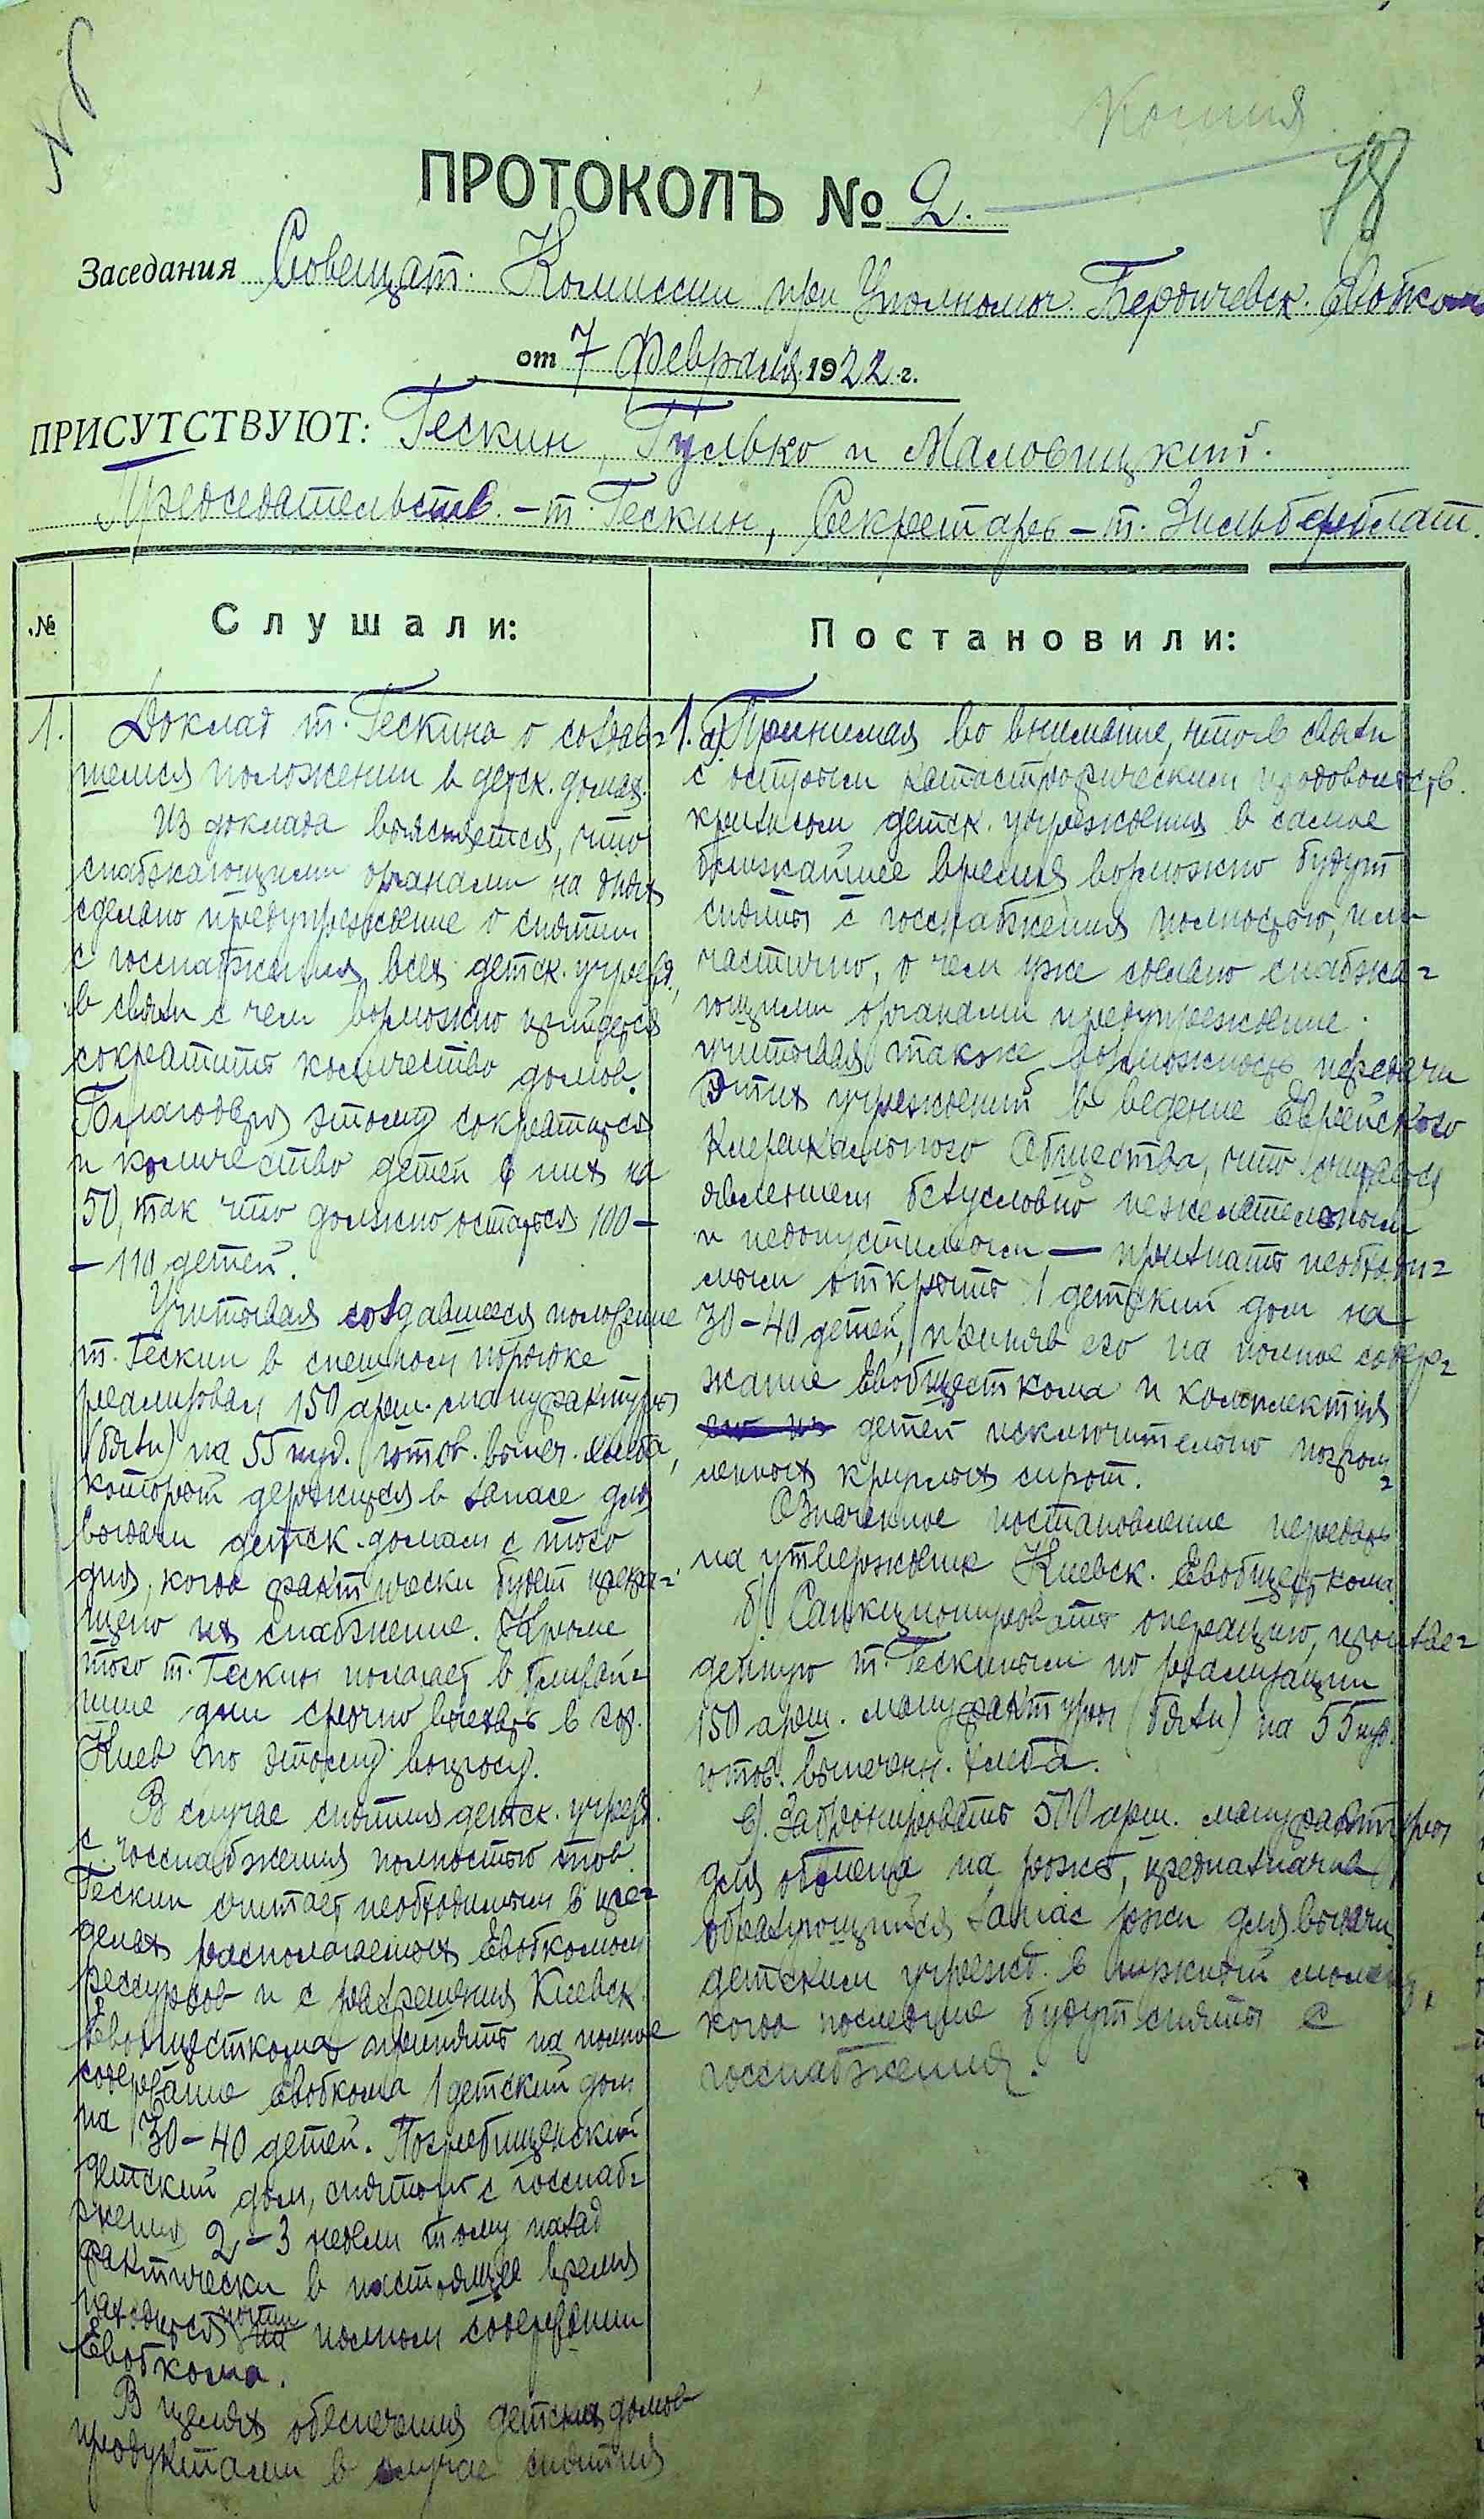 Копия
18
ПРОТОКОЛЪ № 2.
Заседания Совещат. Комиссии при Уполномоч. Бердичевск. Евобком
от 7 февраля 1922 г.
ПРИСУТСТВУЮТ: Гескин, Гулько и Маловицкий.
Председательств. – т. Гескин, Секретарь – т. Зильберблат.
№
Слушали:
1.
Доклад т. Гескина о создав=
шемся положении в детск. домах.
Из доклада выясняется, что
снабжающими органами на днях
сделано предупреждение о снятии
с госснабжения всех детск. учрежд.,
в связи с чем возможно придется
сократить количество домов.
Благодаря этому сократится
и количество детей в них на
50, так что должно остаться 100–
–110 детей.
Учитывая создавшееся положение
т. Гескин в спешном порядке
реализовал 150 арш. мануфактуры
(бязи) на 55 пуд. готов. выпеч. хлеба,
который держится в запасе для
выдачи детск. домам с того
дня, когда фактически будет прекра=
щено их снабжение. Кроме
того т. Гескин полагает в ближай=
шие дни срочно выехать в гор.
Киев по этому вопросу.
В случае снятия детск. учрежд.
с госснабжения полностью тов.
Гескин считает необходимым в пре=
делах располагаемых Евобкомом
рессурсов и с разрешения Киевск.
Евобщесткома принять на полное
содержание Евобкома 1 детский дом
на 30–40 детей. Погребищенский
детский дом, снятый с госснаб=
жения 2–3 недели тому назад
фактически в настоящее время
находится почти на полном содержании
Евобкома.
В целях обеспечения детских домов
продуктами в случае снятия
Постановили:
1. а) Принимая во внимание, что в связи
с острым катастрофическим продовольств.
кризисом детск. учреждения в самое
ближайшее время возможно будут
сняты с госснабжения полностью, или
частично, о чем уже сделано снабжа=
ющими органами предупреждение.
учитывая также возможность передачи
этих учреждений в ведение Еврейского
Клерикального Общества, что
явлением безусловно нежелательным
и недопустимым — признать необходи=
мым открыть 1 детский дом на
30–40 детей, приняв его на полное содер=
жание Евобщесткома и комплектуя
детей исключительно погром=
ленных круглых сирот.
Означенное постановление передать
на утверждение Киевск. Евобщесткома.
б). Санкционировать операцию, произве=
денную т. Гескиным по реализации
150 арш. мануфактуры (бязи) на 55 пуд.
готов. выпеченн. хлеба.
в). Забронировать 500 арш. мануфактуры
для обмена на рожь, предназначив
образующийся запас ржи для выдачи
детским учрежд. в нужный момент,
когда последние будут сняты с
госснабжения.